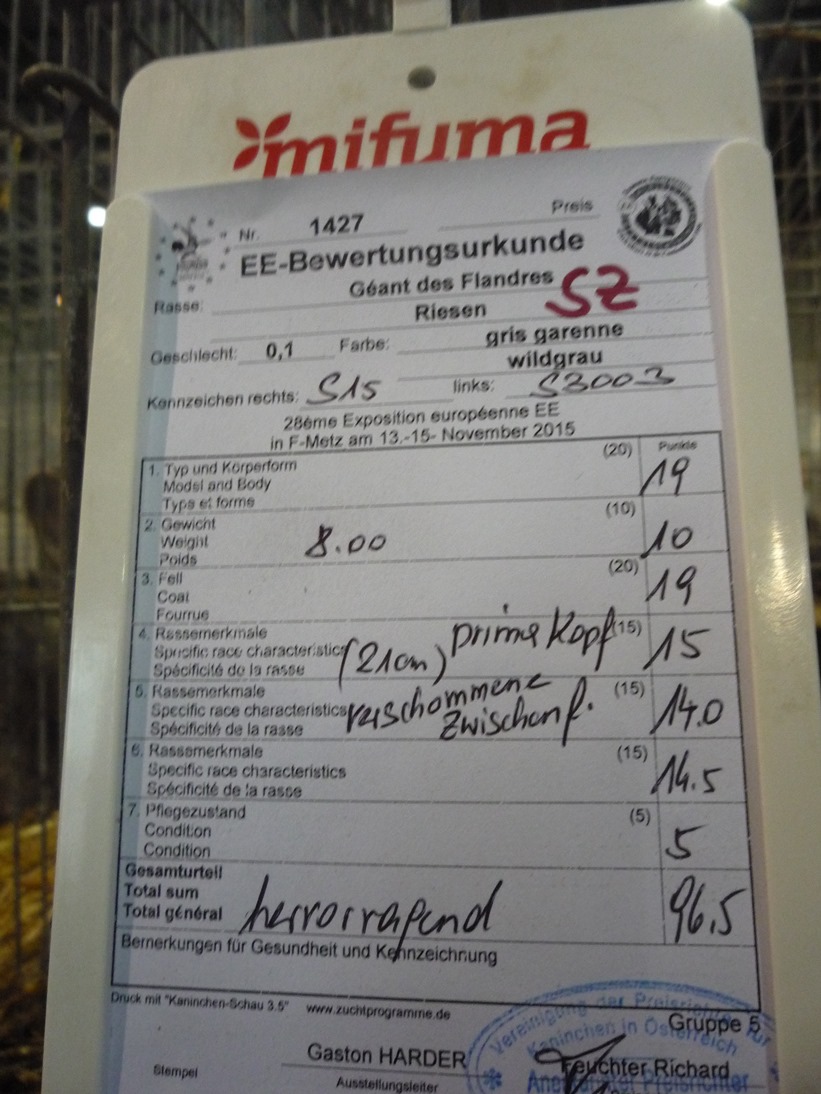 mifuma
Nr. 1427 Preis
EE-Bewertungsurkunde
Rasse: Géant des Flandres SZ
Riesen
Geschlecht: 0,1 Farbe: gris garenne
wildgrau
Kennzeichen rechts: S15 links: S3003
28éme Exposition européenne EE
in F-Metz am 13.-15- November 2015
Punkte
1. Typ und Körperform (20) 19
Model and Body
Type et forme
2. Gewicht (10)
Weight 8.00 10
Poids
3. Fell (20) 19
Coat
Fourrue
4. Rassemerkmale (15)
Specific race characteristics (21cm) prima Kopf 15
Spécificité de la rasse
5. Rassemerkmale (15)
Specific race characteristics verschommene 14.0
Spécificité de la rasse Zwischenf.
6. Rassemerkmale (15)
Specific race characteristics 14.5
Spécificité de la rasse
7. Pflegezustand (5)
Condition 5
Condition
Gesamturteil
Total sum hervorragend 96.5
Total général
Bemerkungen für Gesundheit und Kennzeichnung
Druck mit "Kaninchen-Schau 3.5" www.zuchtprogramme.de
Gruppe 5
Vereinigung der Preisrichter für
Kaninchen in Österreich
Gaston HARDER Feuchter Richard
Stempel Ausstellungsleiter Preisrichter